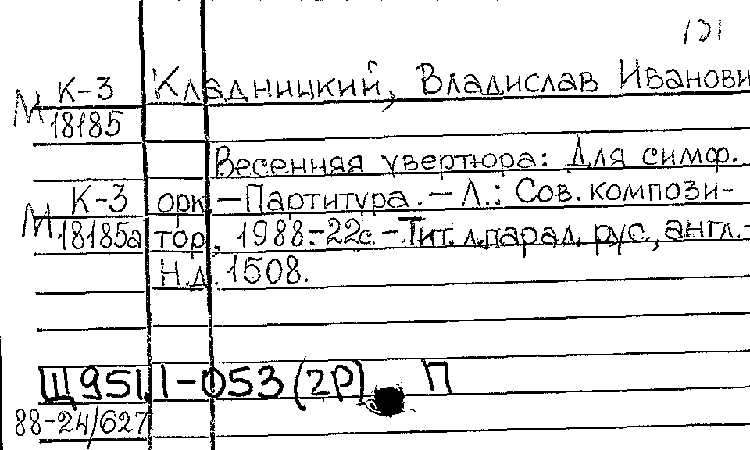 131
М К-3 Кладницкий, Владислав Иванови
18185
Весенняя увертюра: Для симф.
М К-3 орк. – Партитура. – Л.: Сов. компози-
18185а тор, 1988. – 22с. – Тит. л. парал. рус., англ. –
Н.д. 1508.
Щ951.1-053(2Р) П
88-24/627